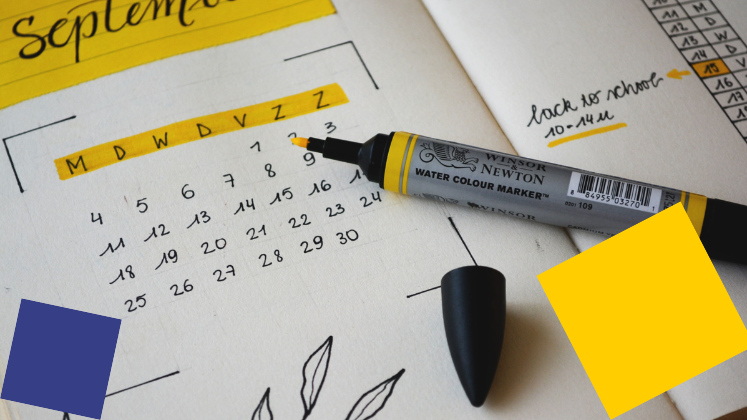 Septem
M D W D V Z Z
1 2 3
4 5 6 7 8 9
11 12 13 14 15 16
18 19 20 21 22 23 24
25 26 27 28 29 30
11 M
12 D
13 W
14 D
15 V
16
17
back to school
10-14u
WINSOR
&
NEWTON
WATER COLOUR MARKER™
8 84955 03270 1
109
WINSOR